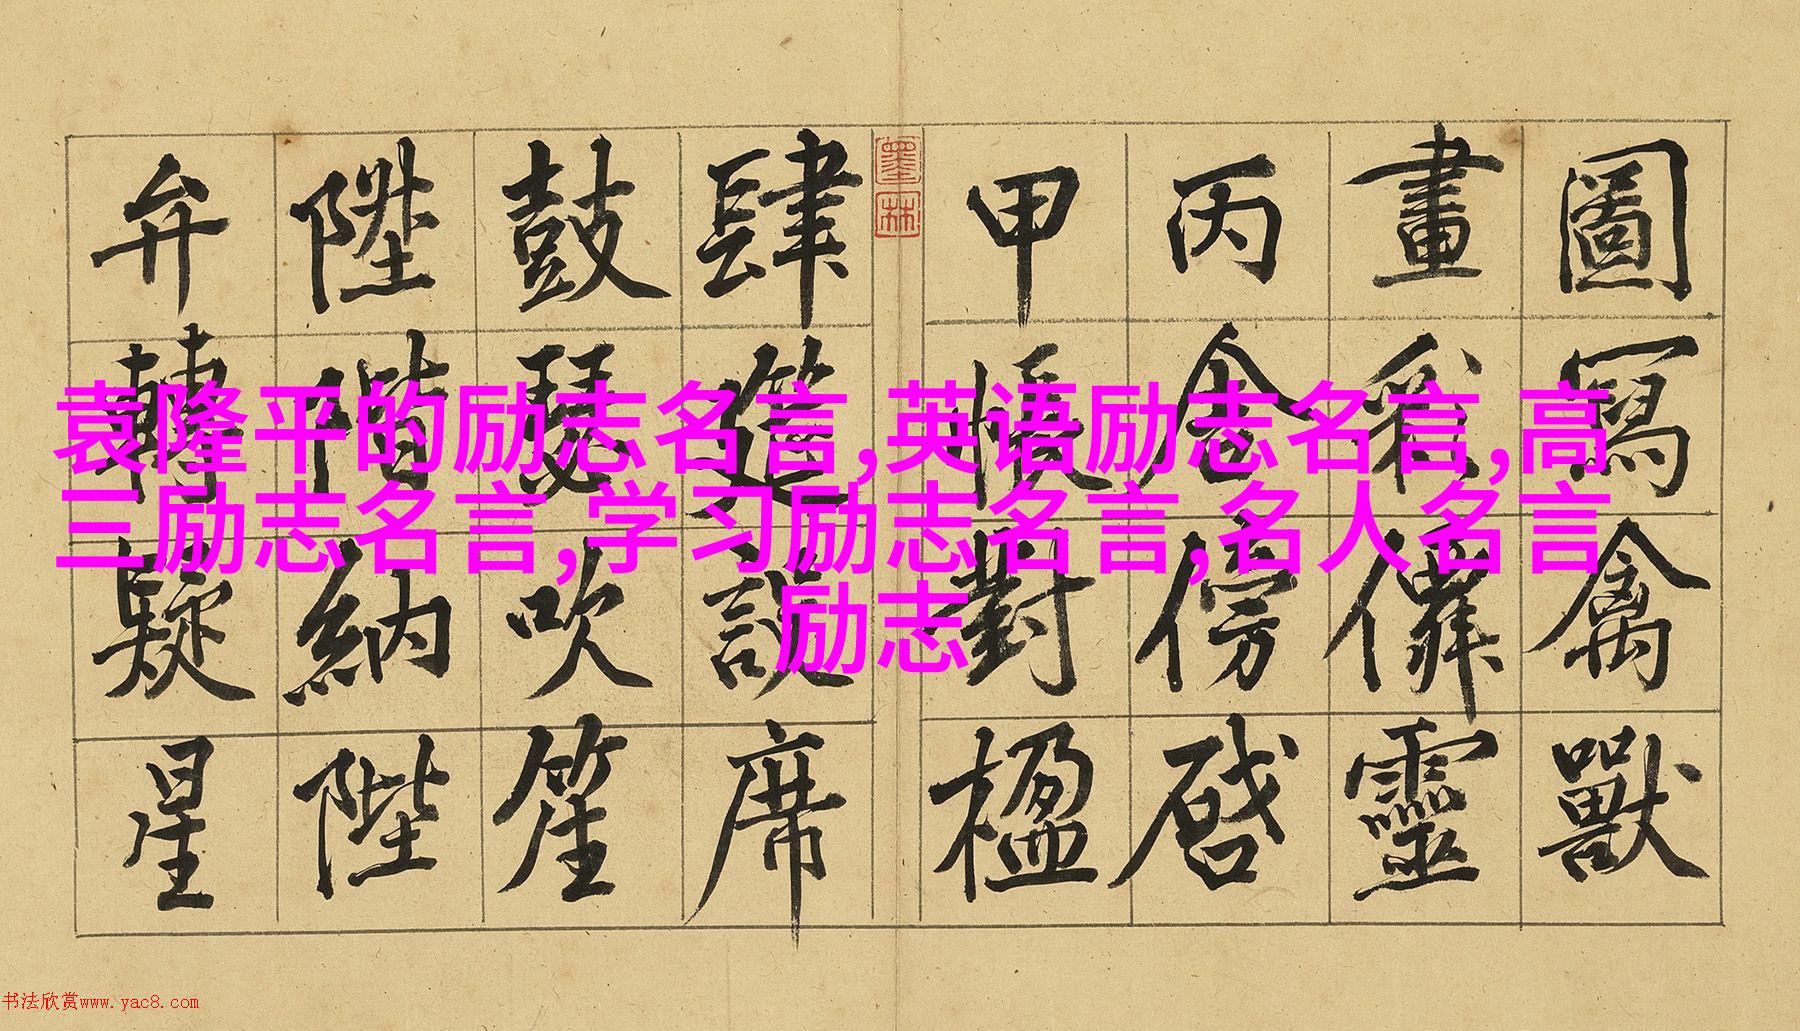 袁隆平的励志名言,英语励志名言,高
三励志名言,学习励志名言,名人名言
励志
圖寫禽獸
畫彩僊靈
丙舍傍啓
甲帳對楹
墨林
肆筵設席
鼓瑟吹笙
陞階納陛
弁轉疑星
书法欣赏www.yac8.com